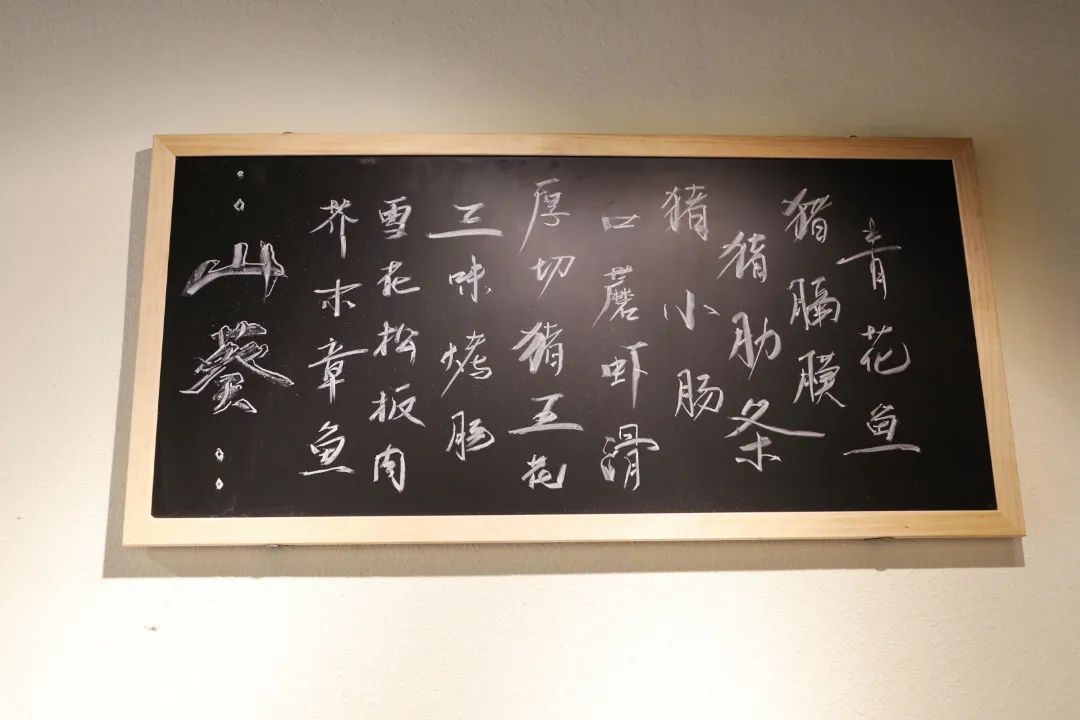 青花鱼
猪膈膜
猪肋条
猪小肠
口蘑虾滑
厚切猪五花
三味烤肠
雪花松板肉
芥末章鱼
山葵